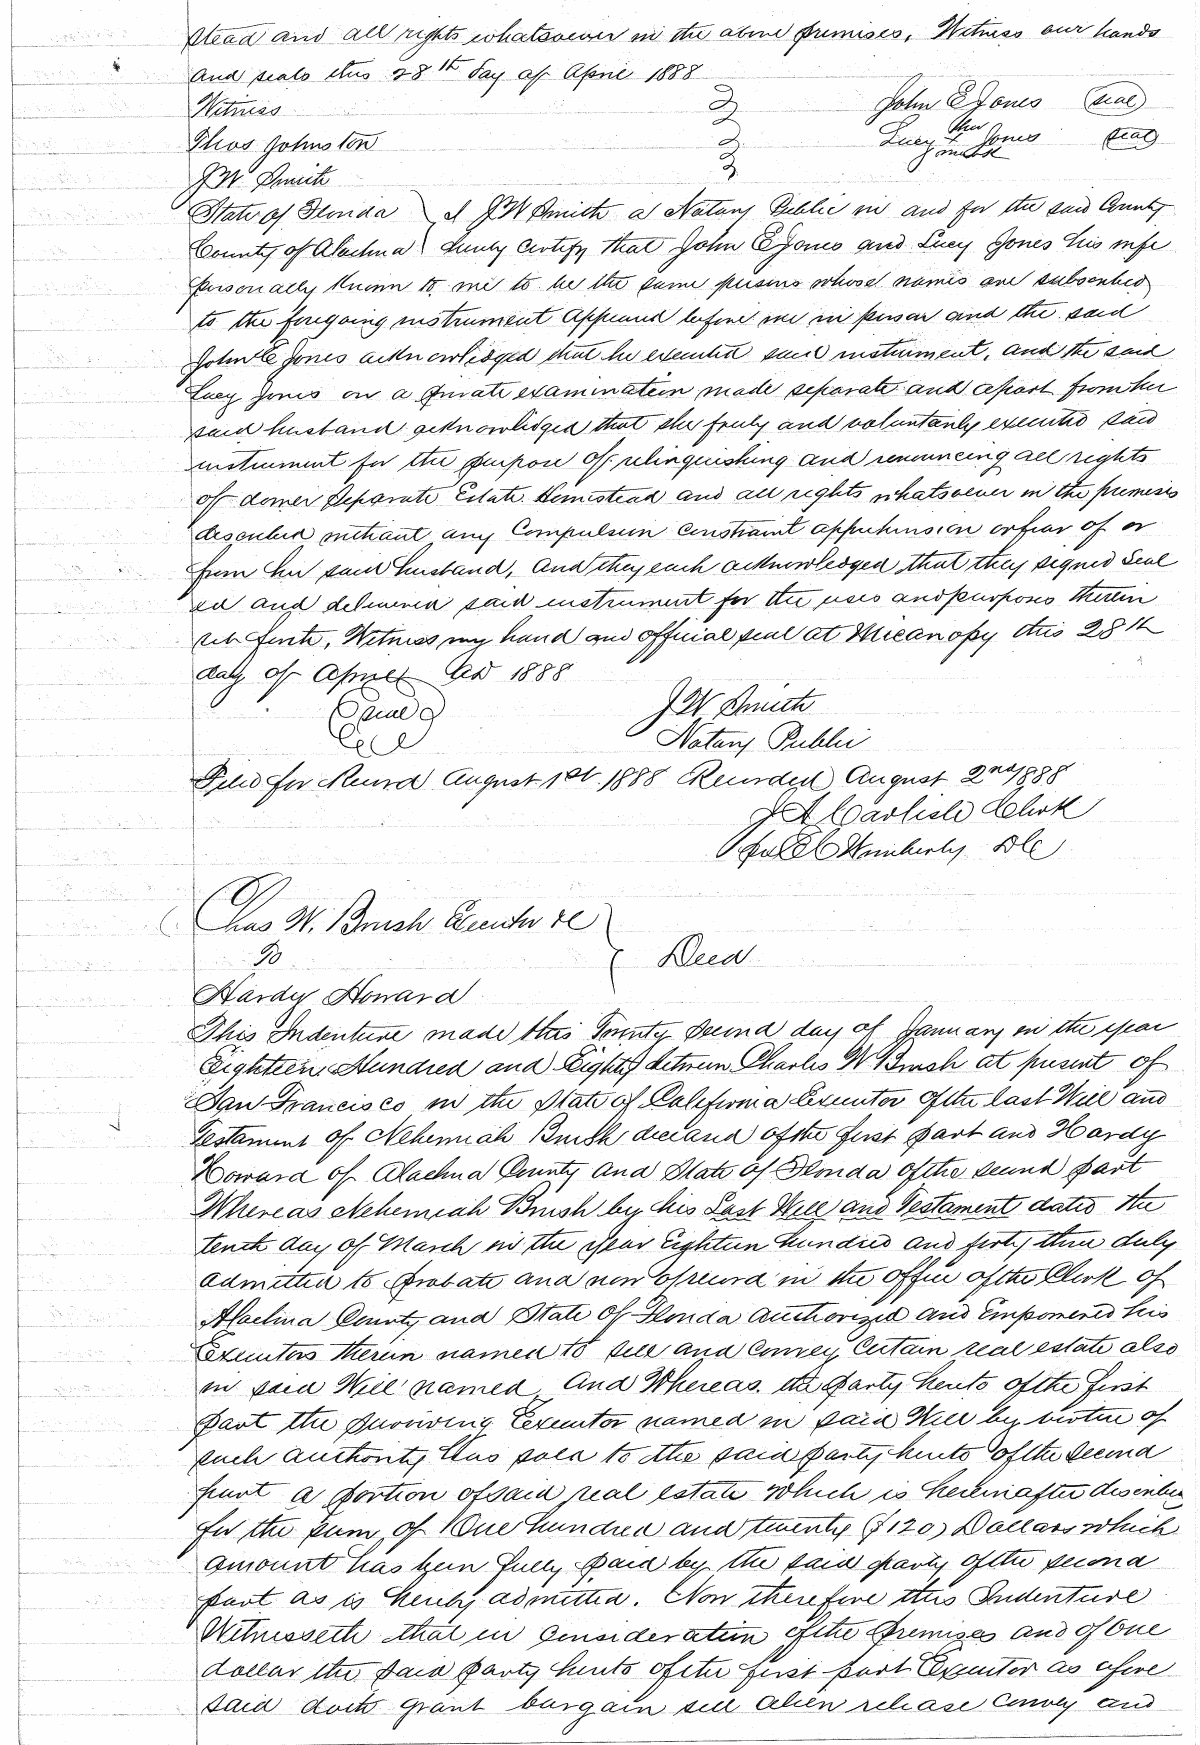 stead and all rights whatsoever in the above premises, Witness our hands
and seals this 28th day of April 1888
Witness John E Jones (seal)
Thos Johnston Lucy her x mark Jones (seal)
J W Smith
State of Florida I J W Smith a Notary Public in and for the said County
County of Alachua hereby certify that John E Jones and Lucy Jones his wife
personally known to me to be the same persons whose names are subscribed
to the foregoing instrument appeared before me in person and the said
John E Jones acknowledged that he executed said instrument, and the said
Lucy Jones on a private examination made separate and apart from her
said husband acknowledged that she freely and voluntarily executed said
instrument for the purpose of relinquishing and renouncing all rights
of dower Separate Estate Homestead and all rights whatsoever in the premises
described without any Compulsion constraint apprehension or fear of or
from her said husband, and they each acknowledged that they signed Seal
ed and delivered said instrument for the uses and purposes therein
set forth, Witness my hand and official seal at Micanopy this 28th
day of April AD 1888
(seal) J W Smith
Notary Public
Filed for Record August 1st 1888 Recorded August 2nd 1888
J A Carlisle Clerk
per Wimberly DC
Chas W. Brush Executor &c
To Deed
Hardy Howard
This Indenture made this Twenty Second day of January in the year
Eighteen Hundred and Eighty between Charles W Brush at present of
San Francisco in the State of California Executor of the last Will and
Testament of Nehemiah Brush deceased of the first part and Hardy
Howard of Alachua County and State of Florida of the second part
Whereas Nehemiah Brush by his Last Will and Testament dated the
tenth day of March in the year Eighteen hundred and forty three duly
admitted to probate and now of record in the office of the Clerk of
Alachua County and State of Florida authorized and Empowered his
Executors therein named to sell and convey Certain real estate also
in said Will named And Whereas the party hereto of the first
part the surviving Executor named in said Will by virtue of
such authority has sold to the said party hereto of the second
part a portion of said real estate which is hereinafter described
for the sum of One hundred and twenty ($120) Dollars which
amount has been fully paid by the said party of the second
part as is hereby admitted. Now therefore this Indenture
Witnesseth that in consideration of the premises and of One
dollar the said party hereto of the first part Executor as afore
said doth grant bargain sell alien release convey and